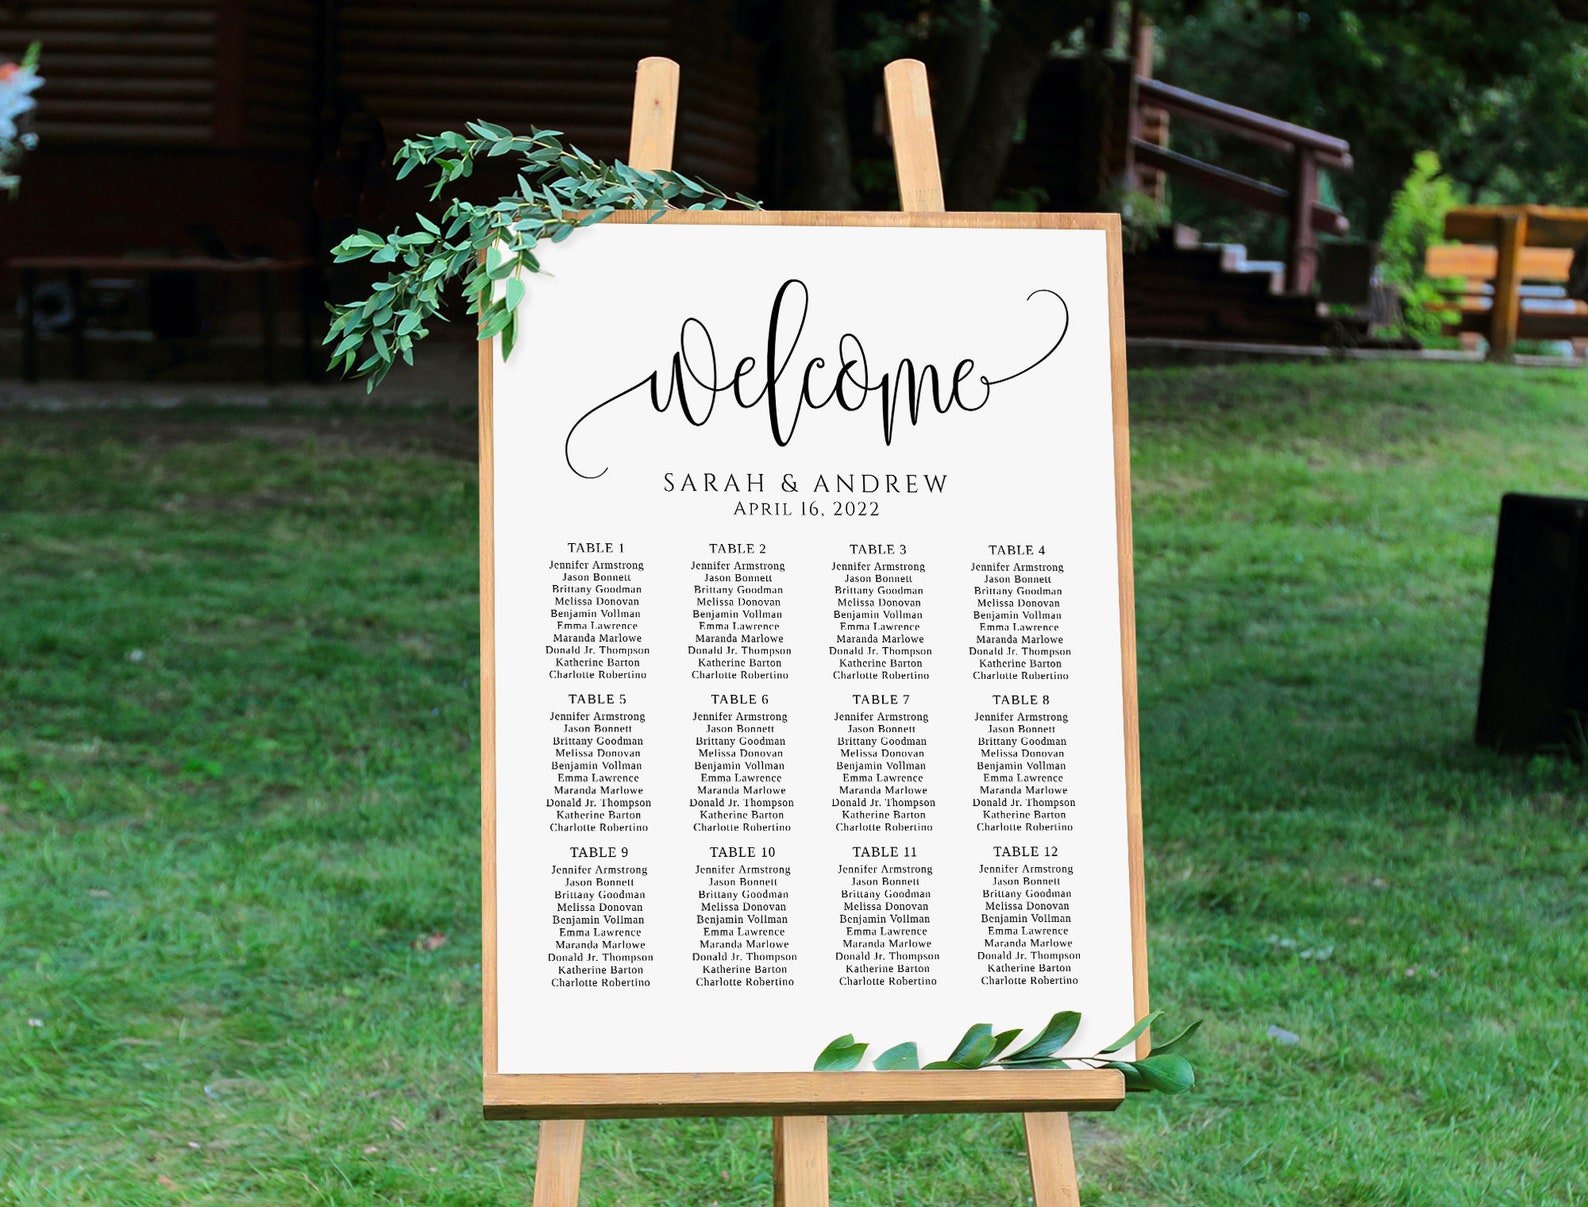 welcome
SARAH & ANDREW
APRIL 16, 2022
TABLE 1
Jennifer Armstrong
Jason Bonnett
Brittany Goodman
Melissa Donovan
Benjamin Vollman
Emma Lawrence
Maranda Marlowe
Donald Jr. Thompson
Katherine Barton
Charlotte Robertino
TABLE 2
Jennifer Armstrong
Jason Bonnett
Brittany Goodman
Melissa Donovan
Benjamin Vollman
Emma Lawrence
Maranda Marlowe
Donald Jr. Thompson
Katherine Barton
Charlotte Robertino
TABLE 3
Jennifer Armstrong
Jason Bonnett
Brittany Goodman
Melissa Donovan
Benjamin Vollman
Emma Lawrence
Maranda Marlowe
Donald Jr. Thompson
Katherine Barton
Charlotte Robertino
TABLE 4
Jennifer Armstrong
Jason Bonnett
Brittany Goodman
Melissa Donovan
Benjamin Vollman
Emma Lawrence
Maranda Marlowe
Donald Jr. Thompson
Katherine Barton
Charlotte Robertino
TABLE 5
Jennifer Armstrong
Jason Bonnett
Brittany Goodman
Melissa Donovan
Benjamin Vollman
Emma Lawrence
Maranda Marlowe
Donald Jr. Thompson
Katherine Barton
Charlotte Robertino
TABLE 6
Jennifer Armstrong
Jason Bonnett
Brittany Goodman
Melissa Donovan
Benjamin Vollman
Emma Lawrence
Maranda Marlowe
Donald Jr. Thompson
Katherine Barton
Charlotte Robertino
TABLE 7
Jennifer Armstrong
Jason Bonnett
Brittany Goodman
Melissa Donovan
Benjamin Vollman
Emma Lawrence
Maranda Marlowe
Donald Jr. Thompson
Katherine Barton
Charlotte Robertino
TABLE 8
Jennifer Armstrong
Jason Bonnett
Brittany Goodman
Melissa Donovan
Benjamin Vollman
Emma Lawrence
Maranda Marlowe
Donald Jr. Thompson
Katherine Barton
Charlotte Robertino
TABLE 9
Jennifer Armstrong
Jason Bonnett
Brittany Goodman
Melissa Donovan
Benjamin Vollman
Emma Lawrence
Maranda Marlowe
Donald Jr. Thompson
Katherine Barton
Charlotte Robertino
TABLE 10
Jennifer Armstrong
Jason Bonnett
Brittany Goodman
Melissa Donovan
Benjamin Vollman
Emma Lawrence
Maranda Marlowe
Donald Jr. Thompson
Katherine Barton
Charlotte Robertino
TABLE 11
Jennifer Armstrong
Jason Bonnett
Brittany Goodman
Melissa Donovan
Benjamin Vollman
Emma Lawrence
Maranda Marlowe
Donald Jr. Thompson
Katherine Barton
Charlotte Robertino
TABLE 12
Jennifer Armstrong
Jason Bonnett
Brittany Goodman
Melissa Donovan
Benjamin Vollman
Emma Lawrence
Maranda Marlowe
Donald Jr. Thompson
Katherine Barton
Charlotte Robertino